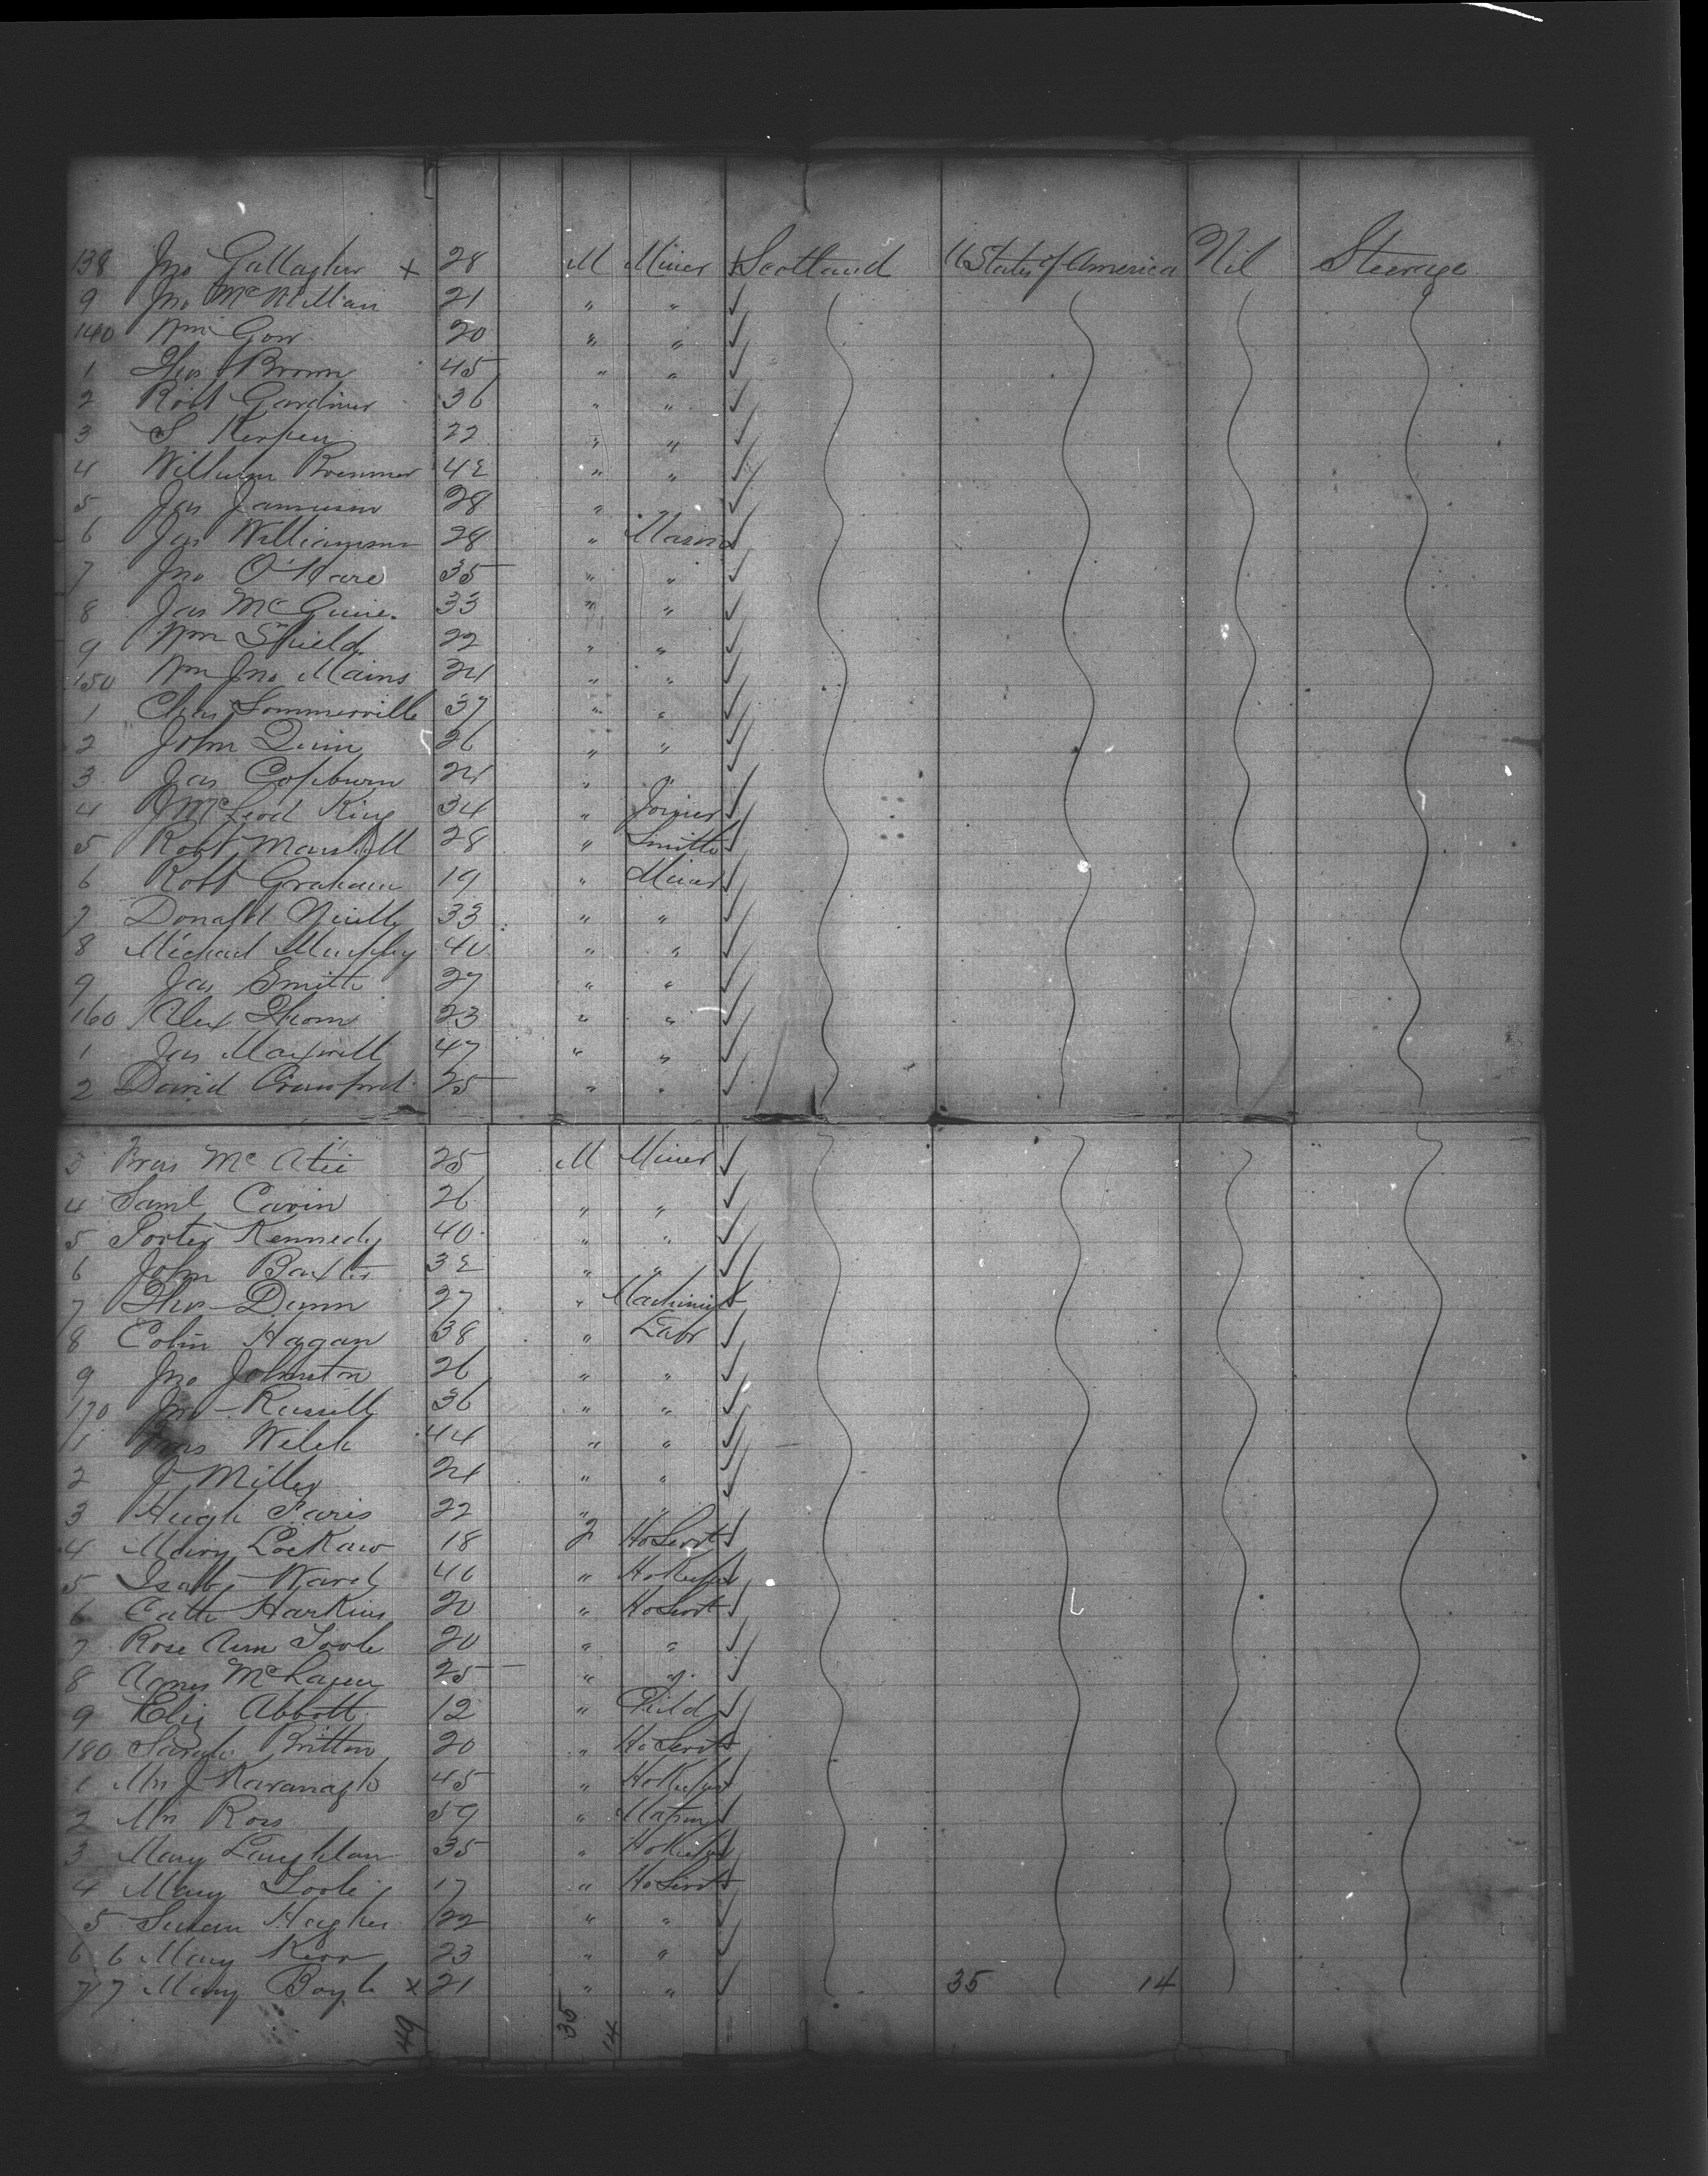 138 Jno Gallagher x 28 M Miner Scotland U States of America Nil Steerage
9 Jno McMillan 21 " " ✓
140 Wm Gow 20 " " ✓
1 Thos Brown 45 " " ✓
2 Robt Gardiner 36 " " ✓
3 S 22 " " ✓
4 William Bremner 42 " " ✓
5 Jas Jamieson 28 " ✓
6 Jas Williamson 28 " Mason ✓
7 Jno O'Hare 35 " " ✓
8 Jas McGuire 33 " " ✓
9 Wm Shield 22 " " ✓
150 Wm Jno Mains 24 " " ✓
1 Chas Sommerville 37 " " ✓
2 John Quin 26 " " ✓
3 Jas 24 " " ✓
4 McLeod King 34 " Joiner ✓
5 Robt Marshall 28 " Smith ✓
6 Robt Graham 19 " Miner ✓
7 Donald 33 " " ✓
8 Michael Murphy 40 " " ✓
9 Jas Smith 27 " " ✓
160 Alex Thom 23 " " ✓
1 Jas Maxwell 47 " " ✓
2 David Crawford 25 " " ✓
3 Fras McAtee 25 M Miner ✓
4 Saml Cavin 26 " " ✓
5 Porter Kennedy 40 " " ✓
6 John Baxter 32 " " ✓
7 Thos Dunn 27 " Machinist
8 Colin Hagan 38 " Labr ✓
9 Jno Johnston 26 " " ✓
170 Jno Russell 36 " " ✓
1 Welch 44 " " ✓
2 J Miller 24 " " ✓
3 Hugh Faris 22 " " ✓
4 Mary 18 F HoServt ✓
5 Isab Ward 40 " HoKeeper ✓
6 Cath Harkins 20 " HoServt ✓
7 Rose Ann Toole 20 " " ✓
8 Agnes McLaren 25 " " ✓
9 Eliz Abbott 12 " Child ✓
180 Sarah Britton 20 " HoServt
1 Mrs J Kavanagh 45 " HoKeeper ✓
2 Mrs Ross 59 " Matron ✓
3 Mary Laughlan 35 " HoKeeper
4 Mary Toole 17 " HoServt
5 Susan Hughes 22 " " ✓
6 6 Mary Kerr 23 " " ✓
7 7 Mary Boyle x 21 " " ✓ 35 14
49 35 14